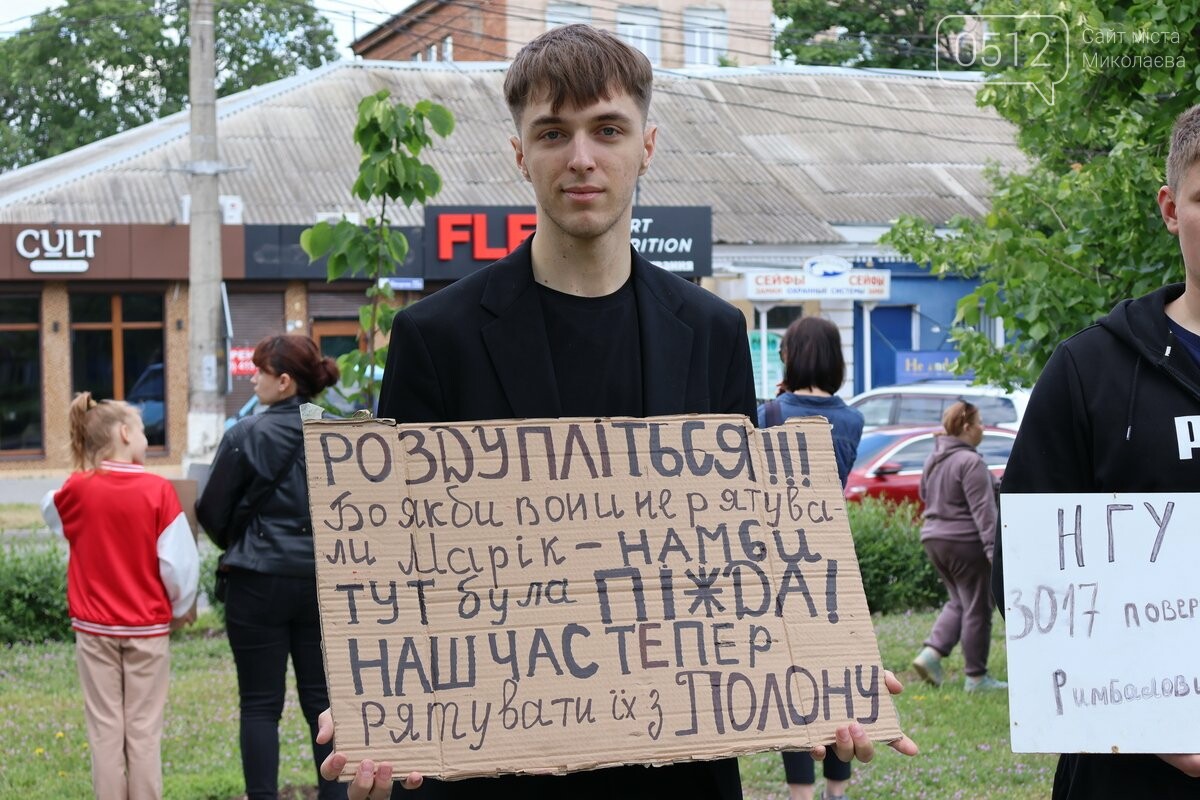 0512 Сайт міста
Миколаєва
CULT
FLE
RT
RITION
СЕЙФЫ СЕЙФЫ
ЗАМКИ ОХРАННЫЕ СИСТЕМЫ
РОЗДУПЛІТЬСЯ!!!
Бо якби вони не рятува-
ли Марік – НАМ би
ТУТ була ПІЖДА!
НАШ ЧАС ТЕПЕР
рятувати їх з ПОЛОНУ
НГУ
3017 повер
Римбалови